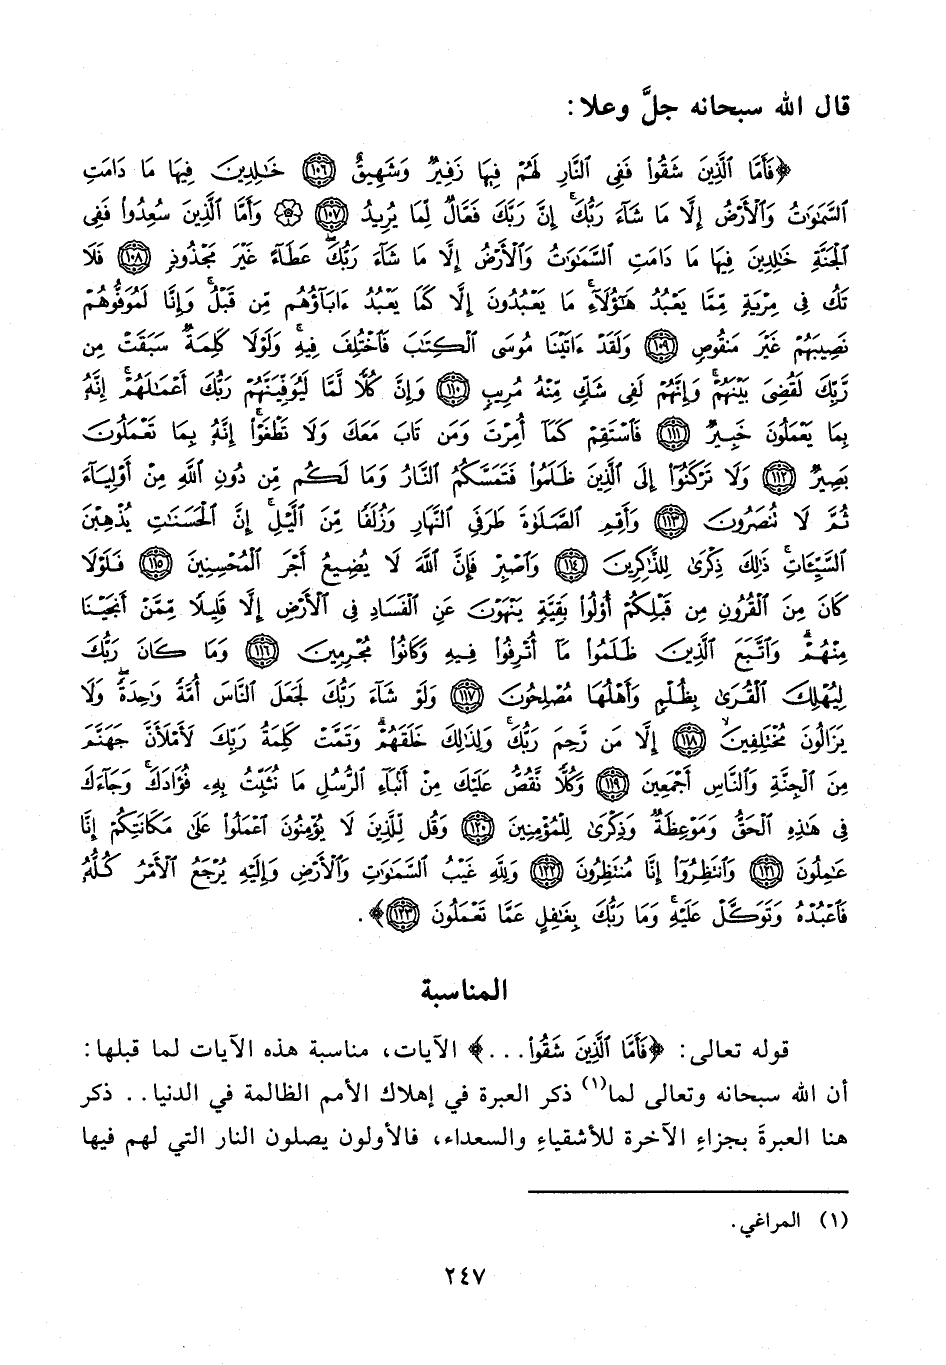 قال الله سبحانه جلَّ وعلا:
﴿فَأَمَّا ٱلَّذِينَ شَقُوا۟ فَفِى ٱلنَّارِ لَهُمْ فِيهَا زَفِيرٌ وَشَهِيقٌ ﴿١٠٦﴾ خَـٰلِدِينَ فِيهَا مَا دَامَتِ
ٱلسَّمَـٰوَٰتُ وَٱلْأَرْضُ إِلَّا مَا شَآءَ رَبُّكَ ۚ إِنَّ رَبَّكَ فَعَّالٌ لِّمَا يُرِيدُ ﴿١٠٧﴾ ۞ وَأَمَّا ٱلَّذِينَ سُعِدُوا۟ فَفِى
ٱلْجَنَّةِ خَـٰلِدِينَ فِيهَا مَا دَامَتِ ٱلسَّمَـٰوَٰتُ وَٱلْأَرْضُ إِلَّا مَا شَآءَ رَبُّكَ ۖ عَطَآءً غَيْرَ مَجْذُوذٍ ﴿١٠٨﴾ فَلَا
تَكُ فِى مِرْيَةٍ مِّمَّا يَعْبُدُ هَـٰٓؤُلَآءِ ۚ مَا يَعْبُدُونَ إِلَّا كَمَا يَعْبُدُ ءَابَآؤُهُم مِّن قَبْلُ ۚ وَإِنَّا لَمُوَفُّوهُمْ
نَصِيبَهُمْ غَيْرَ مَنقُوصٍ ﴿١٠٩﴾ وَلَقَدْ ءَاتَيْنَا مُوسَى ٱلْكِتَـٰبَ فَٱخْتُلِفَ فِيهِ ۚ وَلَوْلَا كَلِمَةٌ سَبَقَتْ مِن
رَّبِّكَ لَقُضِىَ بَيْنَهُمْ ۚ وَإِنَّهُمْ لَفِى شَكٍّ مِّنْهُ مُرِيبٍ ﴿١١٠﴾ وَإِنَّ كُلًّا لَّمَّا لَيُوَفِّيَنَّهُمْ رَبُّكَ أَعْمَـٰلَهُمْ ۚ إِنَّهُۥ
بِمَا يَعْمَلُونَ خَبِيرٌ ﴿١١١﴾ فَٱسْتَقِمْ كَمَآ أُمِرْتَ وَمَن تَابَ مَعَكَ وَلَا تَطْغَوْا۟ ۚ إِنَّهُۥ بِمَا تَعْمَلُونَ
بَصِيرٌ ﴿١١٢﴾ وَلَا تَرْكَنُوٓا۟ إِلَى ٱلَّذِينَ ظَلَمُوا۟ فَتَمَسَّكُمُ ٱلنَّارُ وَمَا لَكُم مِّن دُونِ ٱللَّهِ مِنْ أَوْلِيَآءَ
ثُمَّ لَا تُنصَرُونَ ﴿١١٣﴾ وَأَقِمِ ٱلصَّلَوٰةَ طَرَفَىِ ٱلنَّهَارِ وَزُلَفًا مِّنَ ٱلَّيْلِ ۚ إِنَّ ٱلْحَسَنَـٰتِ يُذْهِبْنَ
ٱلسَّيِّـَٔاتِ ۚ ذَٰلِكَ ذِكْرَىٰ لِلذَّٰكِرِينَ ﴿١١٤﴾ وَٱصْبِرْ فَإِنَّ ٱللَّهَ لَا يُضِيعُ أَجْرَ ٱلْمُحْسِنِينَ ﴿١١٥﴾ فَلَوْلَا
كَانَ مِنَ ٱلْقُرُونِ مِن قَبْلِكُمْ أُو۟لُوا۟ بَقِيَّةٍ يَنْهَوْنَ عَنِ ٱلْفَسَادِ فِى ٱلْأَرْضِ إِلَّا قَلِيلًا مِّمَّنْ أَنجَيْنَا
مِنْهُمْ ۗ وَٱتَّبَعَ ٱلَّذِينَ ظَلَمُوا۟ مَآ أُتْرِفُوا۟ فِيهِ وَكَانُوا۟ مُجْرِمِينَ ﴿١١٦﴾ وَمَا كَانَ رَبُّكَ
لِيُهْلِكَ ٱلْقُرَىٰ بِظُلْمٍ وَأَهْلُهَا مُصْلِحُونَ ﴿١١٧﴾ وَلَوْ شَآءَ رَبُّكَ لَجَعَلَ ٱلنَّاسَ أُمَّةً وَٰحِدَةً ۖ وَلَا
يَزَالُونَ مُخْتَلِفِينَ ﴿١١٨﴾ إِلَّا مَن رَّحِمَ رَبُّكَ ۚ وَلِذَٰلِكَ خَلَقَهُمْ ۗ وَتَمَّتْ كَلِمَةُ رَبِّكَ لَأَمْلَأَنَّ جَهَنَّمَ
مِنَ ٱلْجِنَّةِ وَٱلنَّاسِ أَجْمَعِينَ ﴿١١٩﴾ وَكُلًّا نَّقُصُّ عَلَيْكَ مِنْ أَنۢبَآءِ ٱلرُّسُلِ مَا نُثَبِّتُ بِهِۦ فُؤَادَكَ ۚ وَجَآءَكَ
فِى هَـٰذِهِ ٱلْحَقُّ وَمَوْعِظَةٌ وَذِكْرَىٰ لِلْمُؤْمِنِينَ ﴿١٢٠﴾ وَقُل لِّلَّذِينَ لَا يُؤْمِنُونَ ٱعْمَلُوا۟ عَلَىٰ مَكَانَتِكُمْ إِنَّا
عَـٰمِلُونَ ﴿١٢١﴾ وَٱنتَظِرُوٓا۟ إِنَّا مُنتَظِرُونَ ﴿١٢٢﴾ وَلِلَّهِ غَيْبُ ٱلسَّمَـٰوَٰتِ وَٱلْأَرْضِ وَإِلَيْهِ يُرْجَعُ ٱلْأَمْرُ كُلُّهُۥ
فَٱعْبُدْهُ وَتَوَكَّلْ عَلَيْهِ ۚ وَمَا رَبُّكَ بِغَـٰفِلٍ عَمَّا تَعْمَلُونَ ﴿١٢٣﴾﴾.
المناسبة
قوله تعالى: ﴿فَأَمَّا ٱلَّذِينَ شَقُوا۟...﴾ الآيات، مناسبة هذه الآيات لما قبلها:
أن الله سبحانه وتعالى لما(١) ذكر العبرة في إهلاك الأمم الظالمة في الدنيا.. ذكر
هنا العبرةَ بجزاءِ الآخرة للأشقياءِ والسعداء، فالأولون يصلون النار التي لهم فيها
(١) المراغي.
٢٤٧